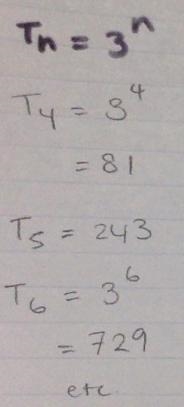 Tn = 3ⁿ
T4 = 3⁴
= 81
T5 = 243
T6 = 3⁶
= 729
etc.